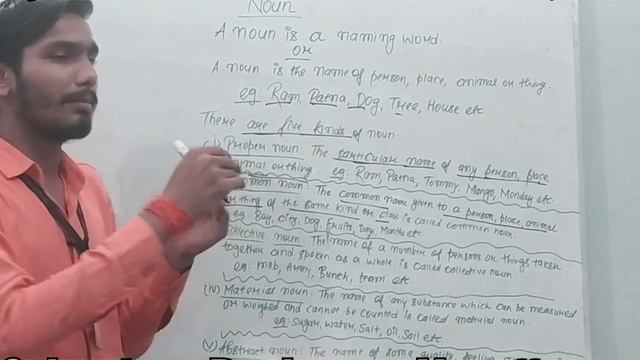 Noun
A noun is a naming word.
OR
A noun is the name of person, place, animal or thing.
eg: Ram, Patna, Dog, Tree, House etc
There are five kinds of noun:
Proper noun: The particular name of any person, place
animal or thing. eg. Ram, Patna, Tommy, Mango, Monday etc
common noun: The common name given to a person, place, animal
or thing of the same kind or class is called common noun.
eg. Boy, City, Dog, Fruits, Day, Months etc
collective noun: The name of a number of persons or things taken
together and spoken as a whole is called collective noun
eg: Mob, Army, Bunch, team etc.
(iv) Material noun: The name of any substance which can be measured
or weighed and cannot be counted is called matrial noun.
eg: Sugar, Water, Salt, Oil, Soil etc
(v) Abstract noun: The name of some quality, feeling